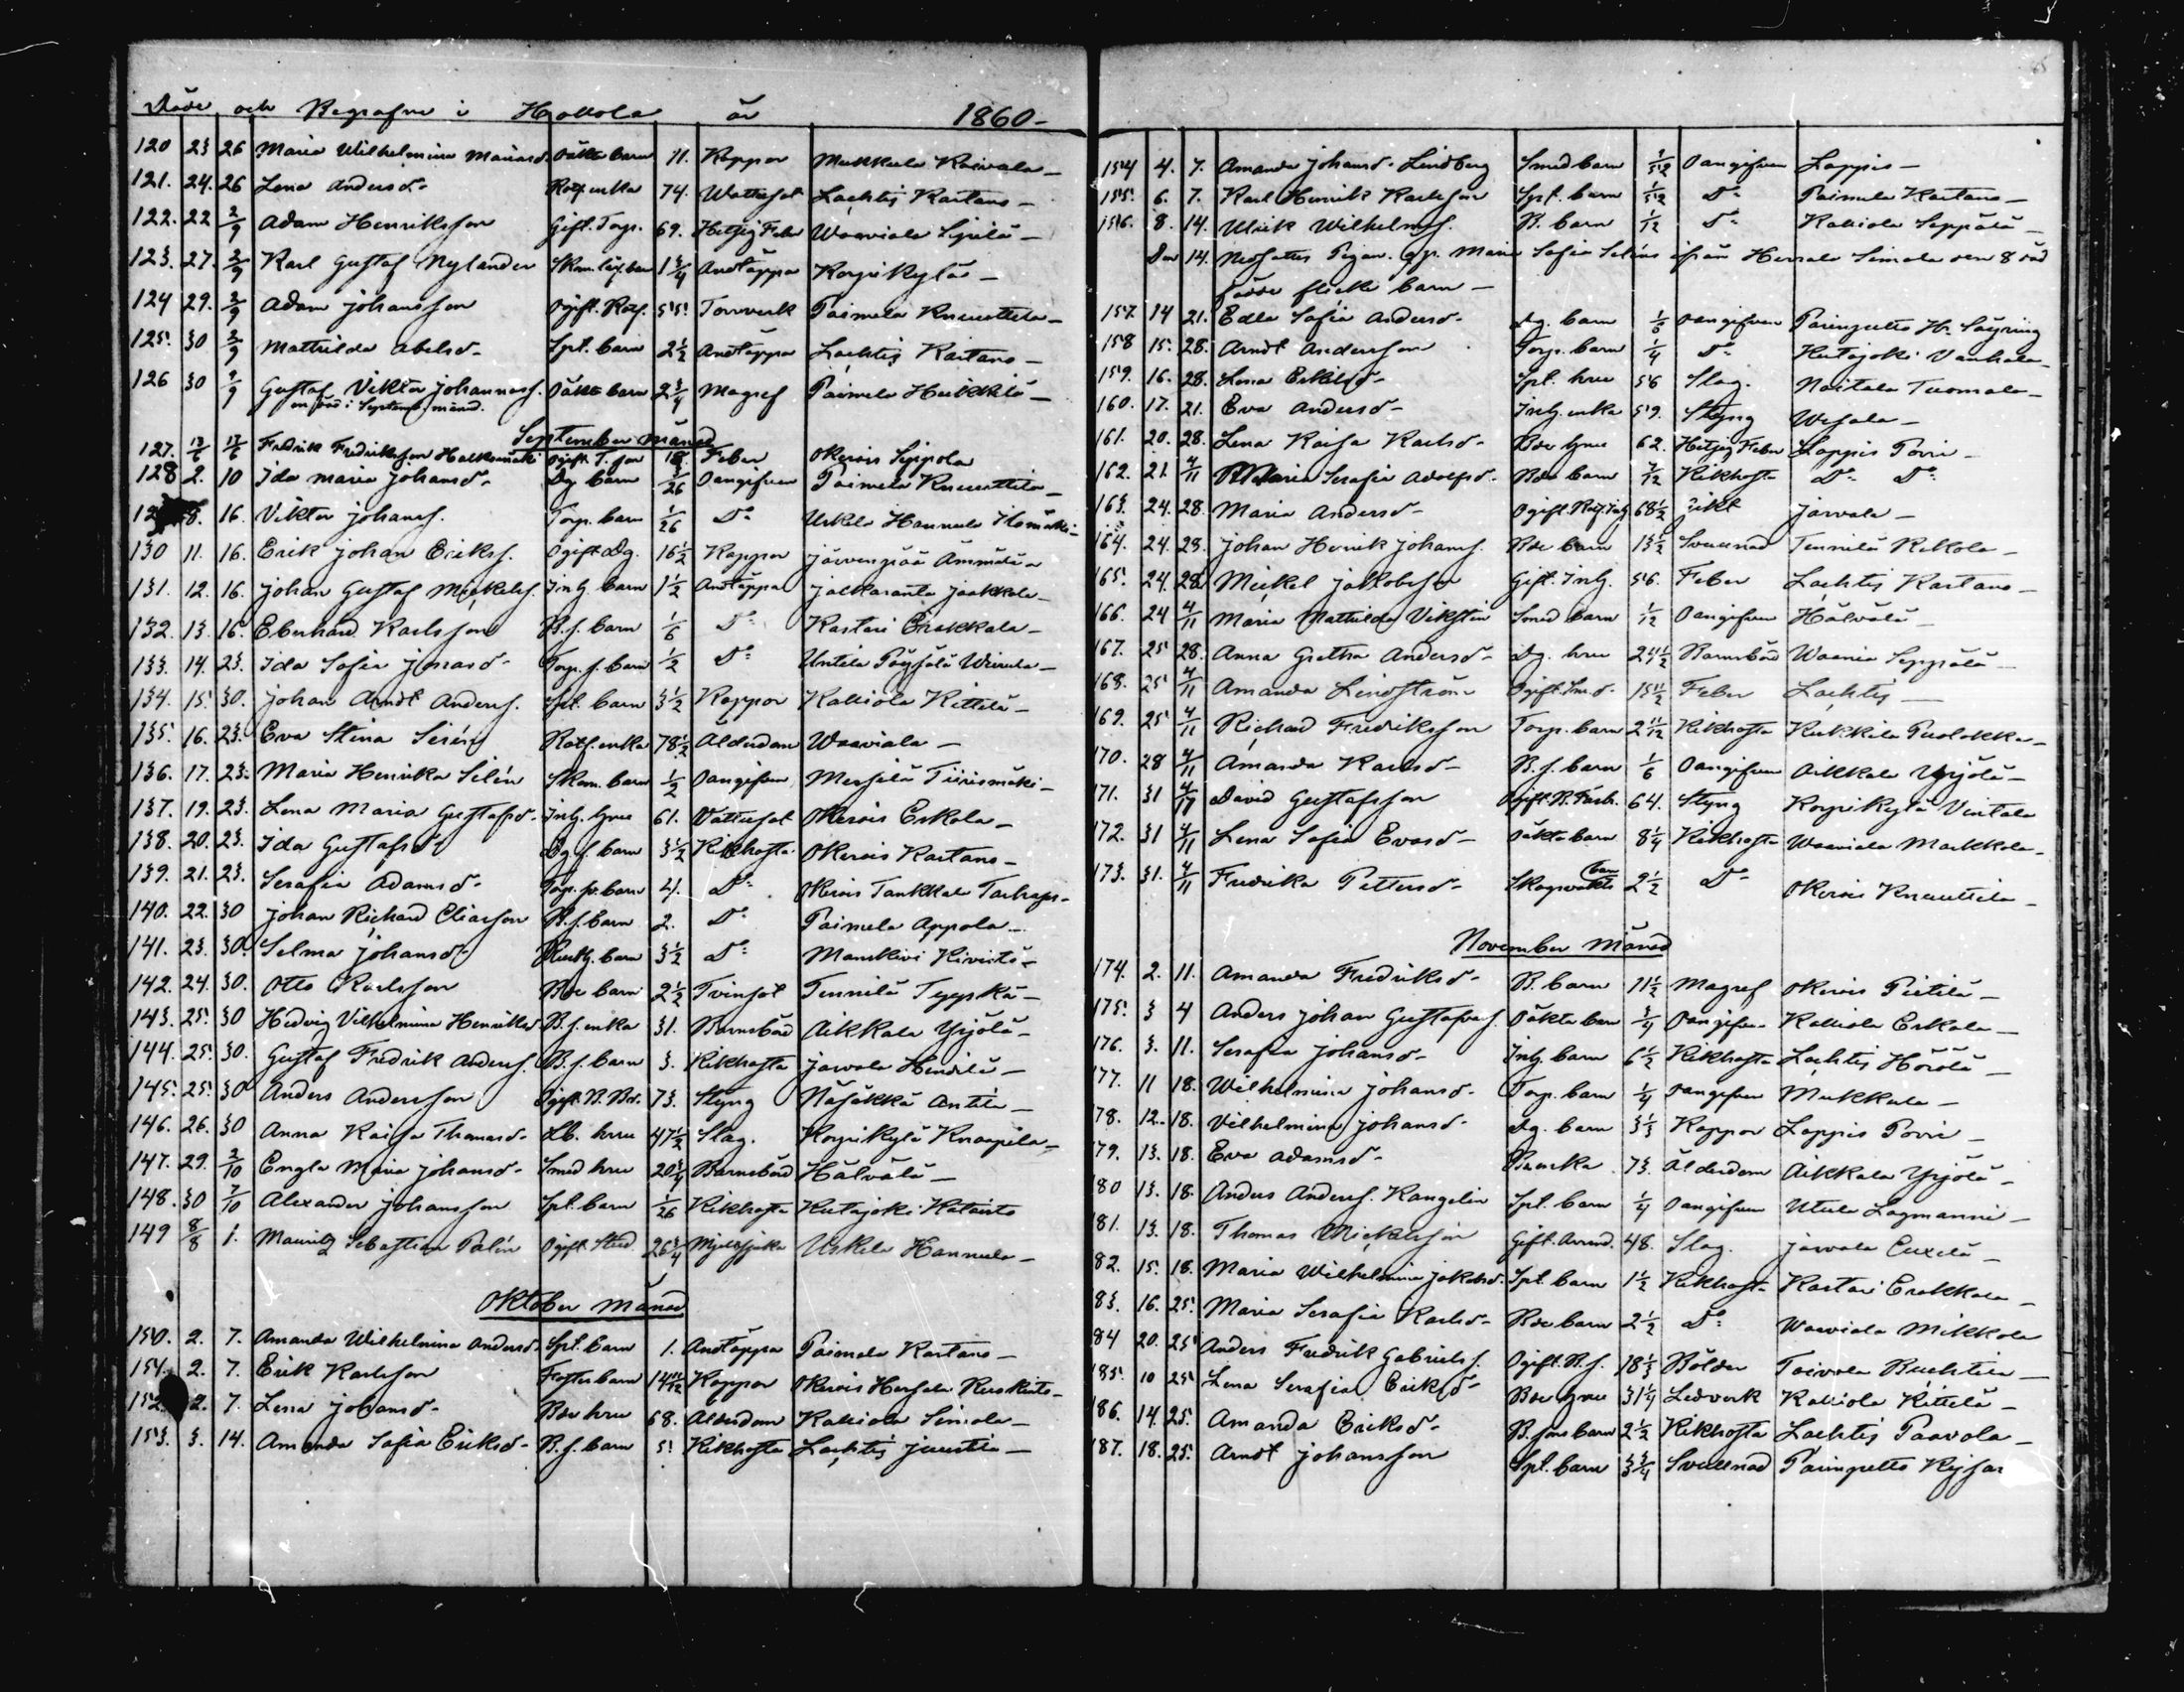 Döde och Begrafne i Hollola år 1860-
120 23 26 Maria Wilhelmina Mariasd. Oäkta barn 11. Koppor Mukkula Koivula -
121. 24. 26 Lena Andersd- Rotf. enka 74. Wattusot Lachtis Kartano -
122. 22 2/9 Adam Henriksson Gift. Torp. 69. Hetsig Feber Waaviala Sipilä -
123. 27. 2/9 Karl Gustaf Nylander 1 3/4 Andtäppa Korpikylä -
124 29. 2/9 Adam Johansson Ogift. Rotf. 55. Torrverk Paimela Knuuttila -
125. 30 2/9 Mathilda Abelsd- Spl. barn 2 1/2 Andtäppa Lachtis Kartano -
126 30 9/9 Gustaf Viktor Johannas. Oäkta barn 2 3/4 Magref Paimela Heikkilä -
September månad
127. Fredrik Fredriksson Ogift T. son 18 Feber Okerois Seppola
128 2. 10 Ida Maria Johansd. Dg barn 3/26 Oangifven Paimela Knuuttila -
8. 16. Viktor Johanss. Torp. barn 1/26 D:o Uskila Hannula
130 11. 16. Erik Johan Erikss. Ogift Dg. 16 1/2 Koppor Järvenpää Ämmälä -
131. 12. 16. Johan Gustaf Mickelss. Inh. barn 1 1/2 Andtäppa Jalkaranta Jaakkola -
132. 13. 16. Eberhard Karlsson B. s. barn 1/6 D:o Kastari Erakkala -
133. 14. 23. Ida Sofia Jonasd- Torp. s. barn 1/2 D:o Untila
134. 15. 30. Johan Arndt Anderss. Spl. barn 3 1/2 Koppor Kalliola Kittilä -
135. 16. 23. Eva Stina Serén Rotf. enka 78 1/2 Ålderdom Waaviala -
136. 17. 23. Maria Henrika Silén barn 1/2 Oangifven Messilä Tiirismäki -
137. 19. 23. Lena Maria Gustafsd. Inh. hru 61. Vattusot Okerois Erkola -
138. 20. 23. Ida Gustafsd. Dg. s. barn 3 1/2 Kikhosta Okerois Kartano -
139. 21. 23. Serafia Adamsd- Torp. barn 4. D:o Okerois Tankkala
140. 22. 30 Johan Richard Eliasson B. s. barn 2. D:o Paimela Appola -
141. 23. 30. Selma Johansd- barn 3 1/2 D:o Manskivi Kivistö -
142. 24. 30. Otto Karlsson Bde barn 2 1/2 Tvinsot Tennilä Tyyskä -
143. 25. 30 Hedvig Vilhelmina Henriksd. B. s. enka 31. Barnsbörd Aikkala Yrjölä -
144. 25. 30. Gustaf Fredrik Anderss. B. s. barn 3. Kikhosta Jarvala Heinilä -
145. 25. 30 Anders Andersson Ogift 73. Styng Näsäkkä Antila -
146. 26. 30 Anna Kaisa Thomasd. hru 47 1/2 Slag. Korpikylä Knaapila -
147. 29. 2/10 Engla Maria Johansd- Smed hru 20 3/4 Barnsbörd Hälvälä -
148. 30 7/10 Alexander Johansson Spl. barn 1/26 Kikhosta Kutajoki Kataisto
149 8/8 1. Mauritz Sebastian Palén Ogift Stud 26 3/4 Mjeltsjuka Uskila Hannula -
Oktober månad
150. 2. 7. Amanda Wilhelmina Andersd. Spl. barn 1. Andtäppa Paimela Kartano -
151. 2. 7. Erik Karlsson Foster barn 14 Koppor Okerois
152. 2. 7. Lena Johansd- Bde hru 68. Ålderdom Kalliola Simola -
153. 3. 14. Amanda Sofia Eriksd- B. s. barn 5 Kikhosta Lachtis Juustila -
154 4. 7. Amanda Johansd- Lindberg Smed barn 1/52 Oangifven Loppis -
155. 6. 7. Karl Henrik Karlsson Spl. barn 1/52 D:o Paimela Kartano -
156. 8. 14. Ulrik Wilhelmss. B. barn 1/12 D:o Kalliola Seppälä -
Den 14. Nedsattes Pigan Maria Sofia Seléns ifrån Herrala Simola den 8 död
födde flicke barn -
157 14 21. Edla Sofia Andersd- Dg. barn 1/6 Oangifven Pairinpelto
158 15. 28. Arndt Andersson Torp. barn 1/4 D:o Kutajoki Vanhala -
159. 16. 28. Lena Eriksd- Spl. hru 56 Slag. Noitala Tuomala -
160. 17. 21. Eva Andersd- Inh. enka 59. Styng Wesala -
161. 20. 28. Lena Kaisa Karlsd- Bde hru 62. Hetsig Feber Loppis Porri -
162. 21. 4/11 Maria Serafia Adolfsd. Bde barn 7/12 Kikhosta D:o D:o
163. 24. 28. Maria Andersd- Ogift. 68 1/2 Gikt Jarvala -
164. 24. 28. Johan Henrik Johanss. Bde barn 13 1/2 Svullnad Tennilä Rekola -
165. 24. 28. Mickel Jakobsson Gift. Inh. 56. Feber Lachtis Kartano -
166. 24 4/11 Maria Mathilda Vikstén Smed barn 1/12 Oangifven Hälvälä -
167. 25 28. Anna Gretha Andersd- Dg. hru 24 1/2 Barnsbörd Waania Seppälä -
168. 25 4/11 Amanda Lindström Ogift 15 1/2 Feber Lachtis -
169. 25 4/11 Richard Fredriksson Torp. barn 2 11/12 Kikhosta Kukkila Puolakka -
170. 28 4/11 Amanda Karlsd- B. s. barn 1/6 Oangifven Aikkala Yrjölä -
171. 31 4/11 David Gustafsson Ogift. 64. Styng Korpikylä Vintala
172. 31 4/11 Lena Sofia Evasd- Oäkta barn 8 1/4 Kikhosta Waaviala Markkola -
173. 31. 4/11 Fredrika Pettersd- Skogvakts barn 2 1/2 D:o Okerois Knuuttila -
November månad
174. 2. 11. Amanda Fredriksd- B. barn 11 1/2 Magref Okerois Pietilä -
175. 3 4 Anders Johan Gustafvas. Oäkta barn 3/4 Oangifven Kalliola Erkola -
176. 3. 11. Serafia Johansd- Inh. barn 6 1/2 Kikhosta Lachtis Hörölä -
177. 11 18. Wilhelmina Johansd- Torp. barn 1/4 Oangifven Mukkula -
78. 12. 18. Vilhelmina Johansd. Dg. barn 3 1/3 Koppor Loppis Porri -
79. 13. 18. Eva Adamsd- 73. Ålderdom Aikkala Yrjölä -
80 13. 18. Anders Anderss. Kangelin Spl. barn 1/4 Oangifven Utula Lagmanni -
81. 13. 18. Thomas Mickelsson Gift. Arrend. 48. Slag. Jarvala Euxelä -
82. 15. 18. Maria Wilhelmina Jakobsd. Spl. barn 1 1/2 Kikhosta Kastari Erakkala -
83. 16. 25. Maria Serafia Karlsd- Bde barn 2 1/2 D:o Waaviala Mikkola
84 20. 25 Anders Fredrik Gabrielss. Ogift. B. s. 18 1/3 Bölder Toivola Buchtila -
185. 10 25 Lena Serafia Eriksd- Bde hru 31 1/4 Ledverk Kalliola Kittelä -
186. 14. 25. Amanda Eriksd- B. sons barn 2 1/2 Kikhosta Lachtis Paavola -
187. 18. 25. Arndt Johansson Spl. barn 3 3/4 Svullnad Pairinpelto